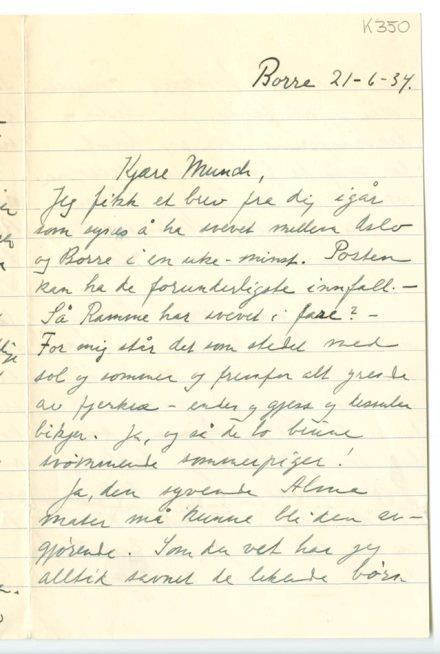 K350
Borre 21-6-34.
Kjære Munch,
Jeg fikk et brev fra dig igår
som synes å ha svevet mellem Oslo
og Borre i en uke - minst. Posten
kan ha de forunderligste innfall. -
Så Ramme har svevet i fare? -
For mig står det som stedet med
sol og sommer og fremfor alt yrende
av fjerkre - ender og gjess og
bikjer. Ja, og så de to brune
svømmende sommerpiger!
Ja, den syvende Alma
mater må kunne bli den av-
gjørende. Som du vet har jeg
alltid savnet de lekende børn